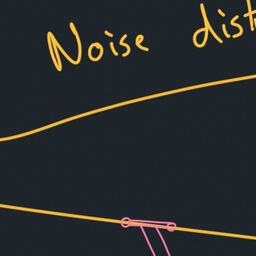 Noise dist